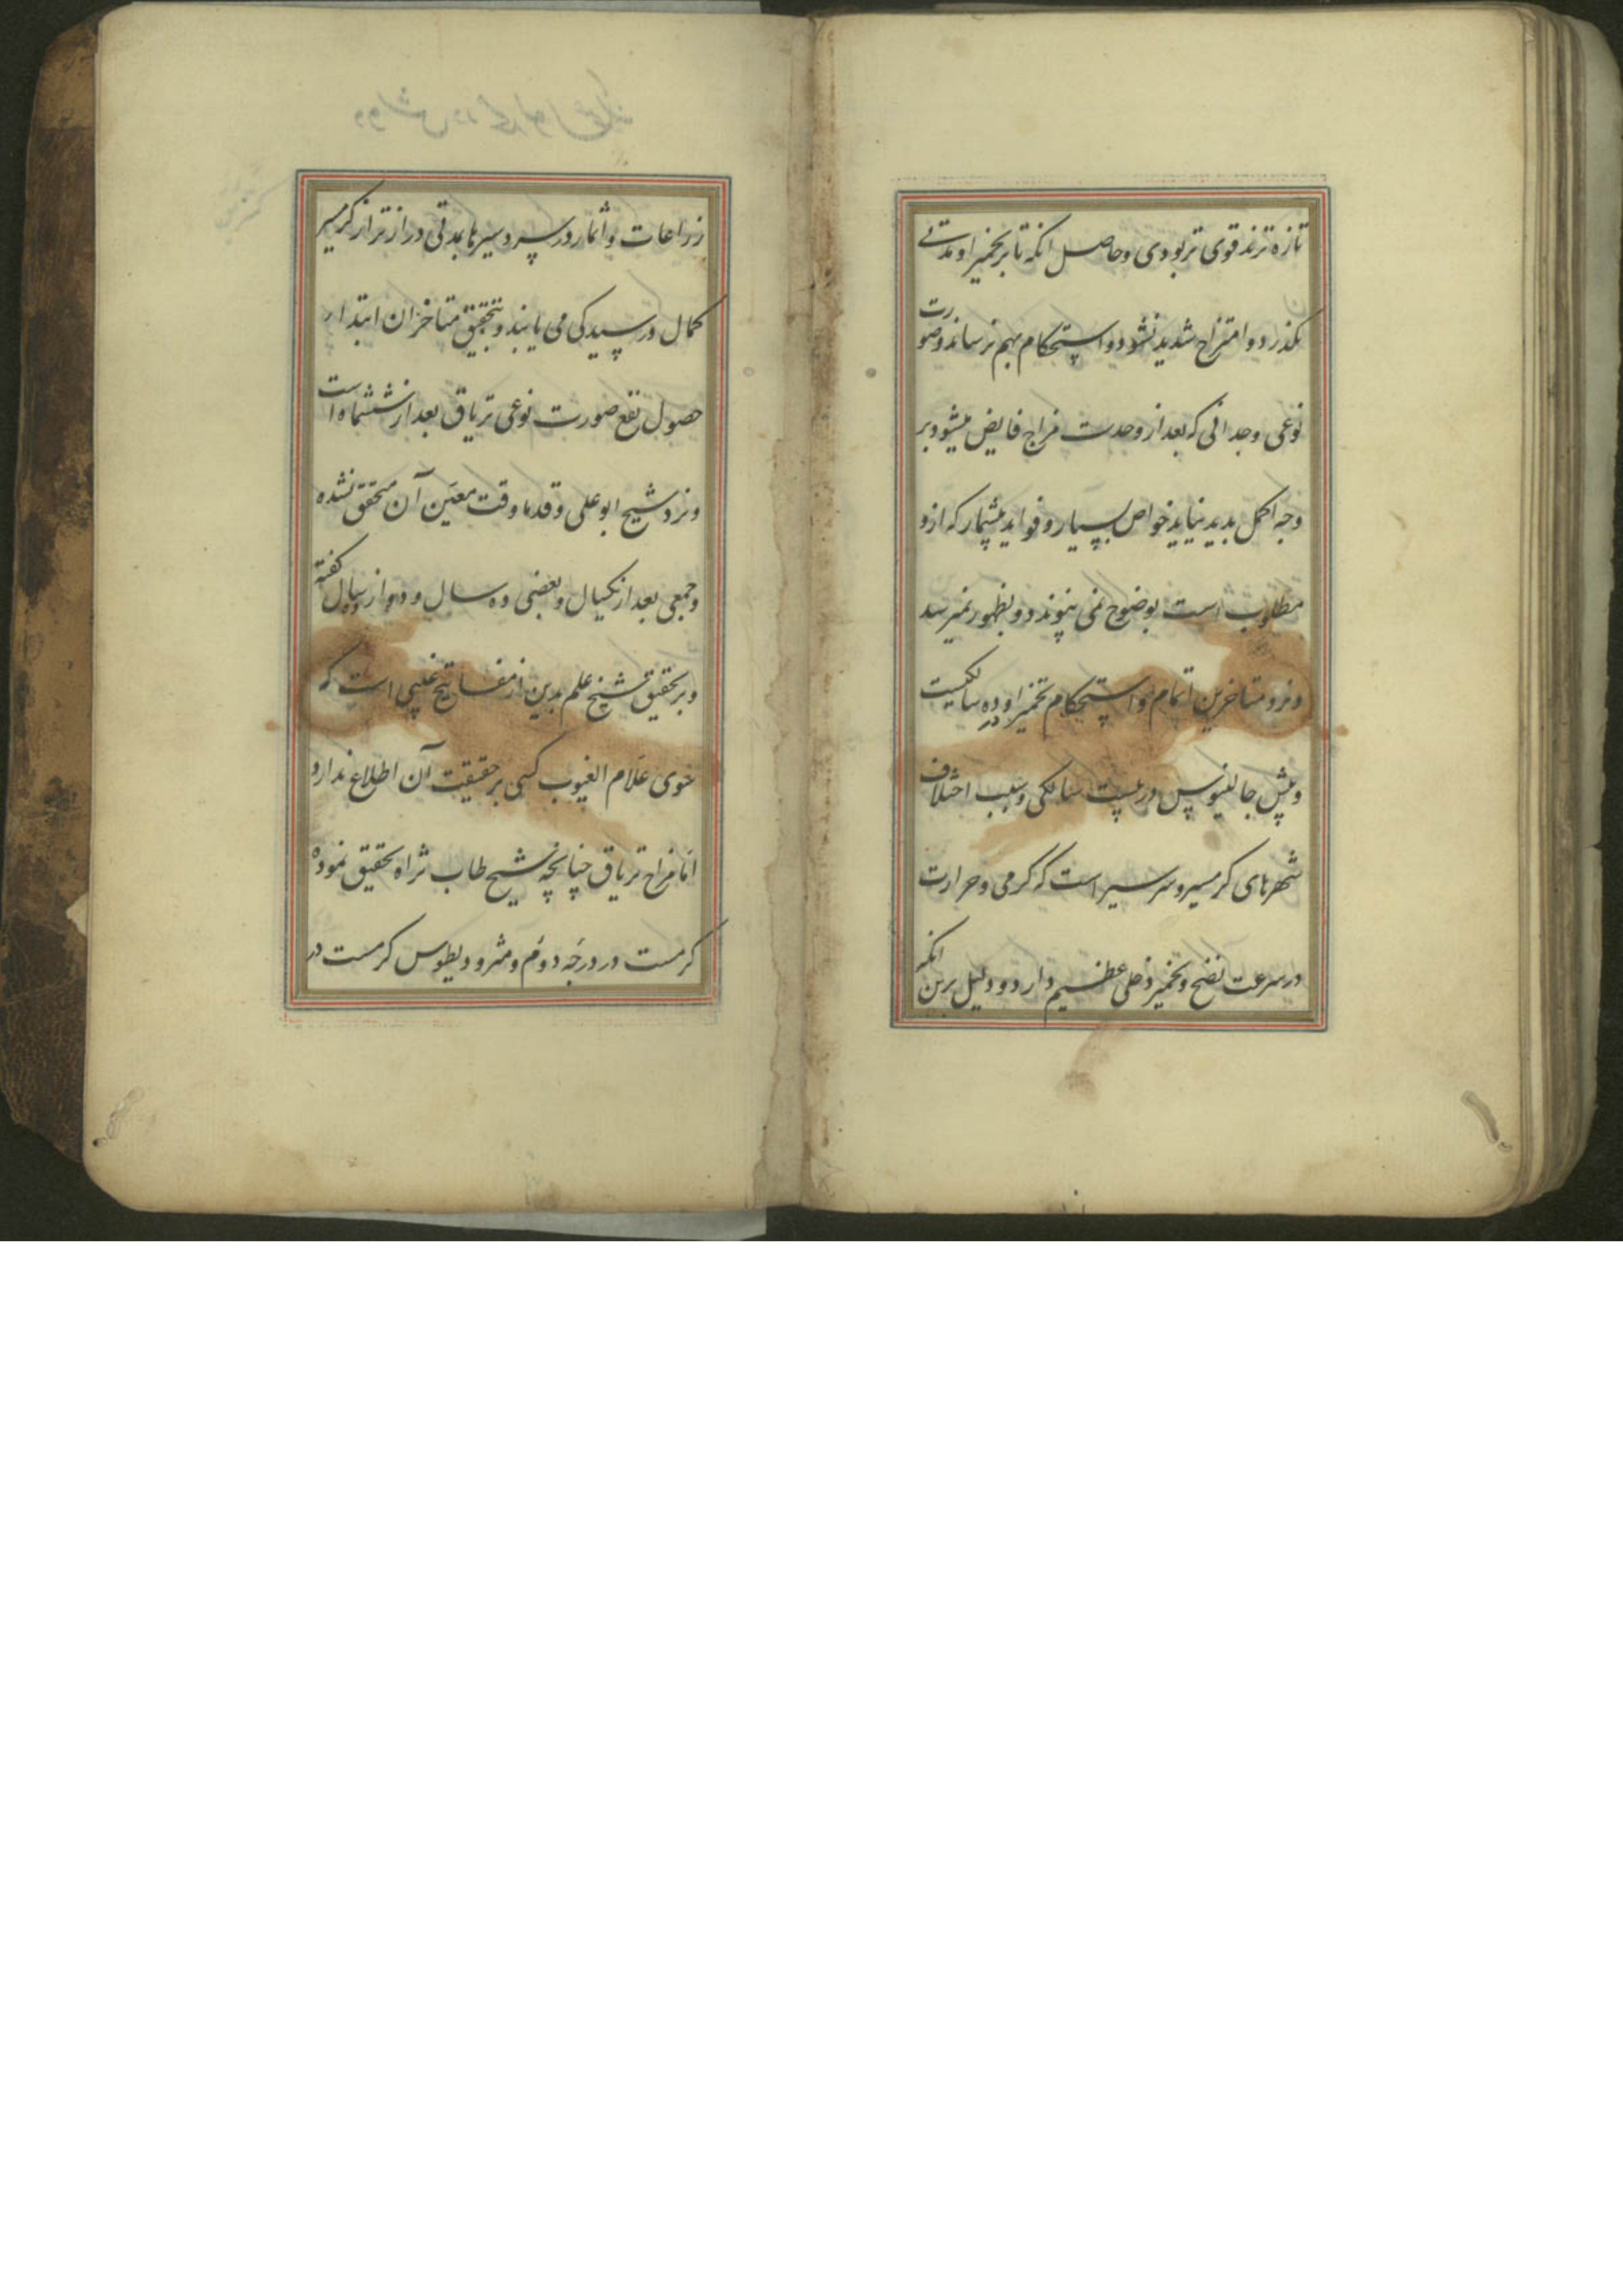 تازه ترند قوی تر بودی وحاصل انکه تا بر تخمیر او مدتی
نکذرد و امتزاج شدید نشود و استحکام بهم نرساند وصورت
نوعی وجدانی که بعد از وحدت مزاج فایض میشود بر
وجه اکمل بدید نیاید خواص بسیار و فواید بیشمار که ازو
مطلوب است بوضوح نمی پیوندد و بظهور نمیرسد
ونزد متاخرین اتمام و استحکام تخمیر او در ده سالکیست
وپیش جالینوس در بیست سالکی وسبب اختلاف
شهرهای کرمسیر وسردسیر است که کرمی وحرارت
در سرعت نضج وتخمیر دخلی عظیم دارد و دلیل برین انکه
زراعات واثمار در سردسیرها بمدتی درازتر از کرمسیر
کمال ورسیدکی می یابند وبتحقیق متاخران ابتدار
حصول نفع صورت نوعی تریاق بعد از ششماه است
ونزد شیخ ابو علی وقدما وقت معین آن متحقق نشده
وجمعی بعد از یکسال وبعضی ده سال و دوازده سال کفته
وبر تحقیق شیخ علم بدین از مفاتیح غیبی است که
علام الغیوب کسی بر حقیقت آن اطلاع ندارد
اما مزاج تریاق چنانچه شیخ طاب ثراه تحقیق نموده
کرمست در درجه دوم ومثرودیطوس کرمست در